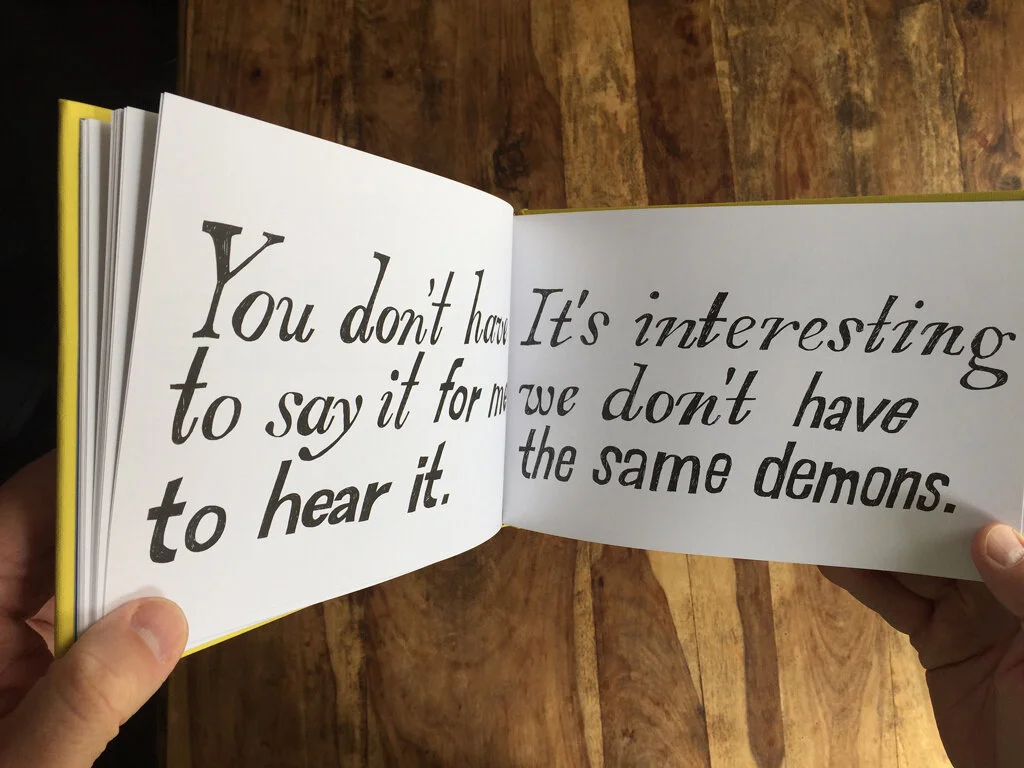 You don't have
to say it for me
to hear it.
It's interesting
we don't have
the same demons.